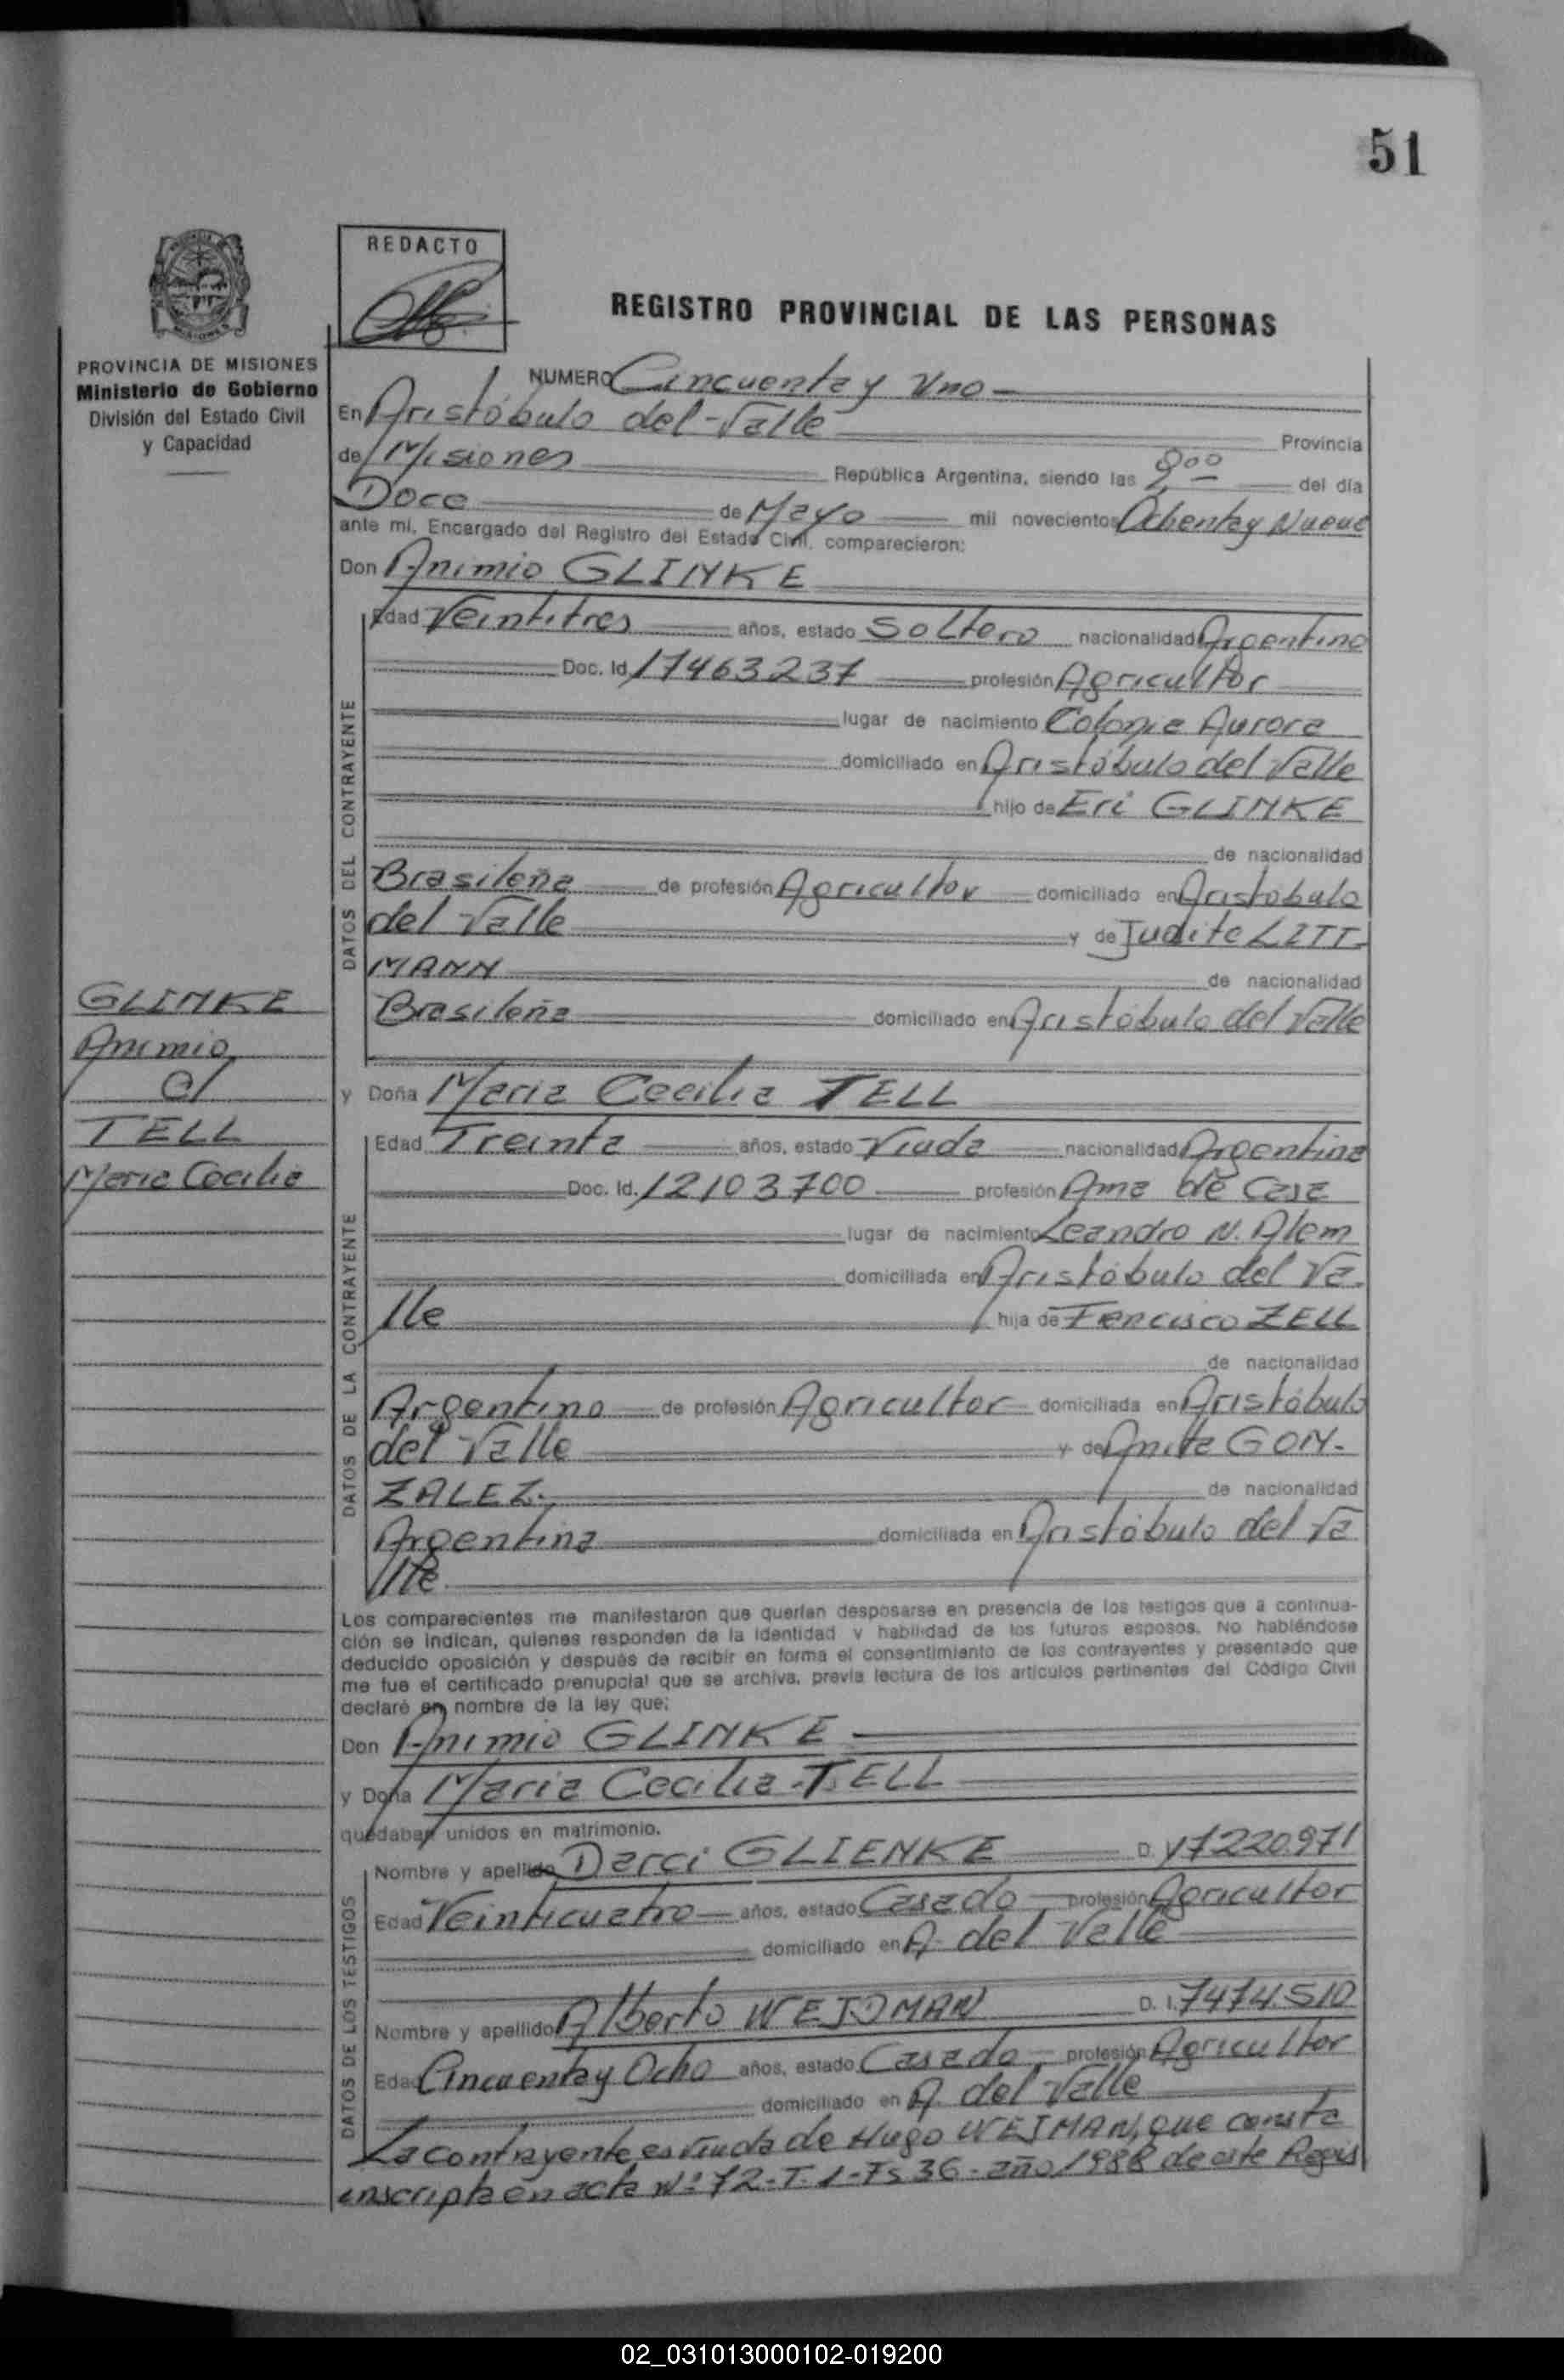 51
REDACTO
REGISTRO PROVINCIAL DE LAS PERSONAS
PROVINCIA DE MISIONES
Ministerio de Gobierno
División del Estado Civil
y Capacidad
NUMERO Cincuenta y Uno
En Aristóbulo del Valle Provincia
de Misiones República Argentina, siendo las 8 00 del día
Doce de Mayo mil novecientos Ochenta y Nueve
ante mí, Encargado del Registro del Estado Civil, comparecieron:
Don Animio GLINKE
Edad Veintitres años, estado Soltero nacionalidad Argentino
Doc. Id. 17463237 profesión Agricultor
lugar de nacimiento Colonia Aurora
domiciliado en Aristóbulo del Valle
hijo de Eri GLINKE
de nacionalidad
Brasileña de profesión Agricultor domiciliado en Aristobulo
del Valle y de Judite LITT-
MANN de nacionalidad
Brasileña domiciliado en Aristóbulo del Valle
DATOS DEL CONTRAYENTE
GLINKE
Animio
C/
TELL
Maria Cecilia
y Doña Maria Cecilia TELL
Edad Treinta años, estado Viuda nacionalidad Argentina
Doc. Id. 12103700 profesión Ama de Casa
lugar de nacimiento Leandro N. Alem
domiciliada en Aristóbulo del Va-
lle hija de Francisco ZELL
de nacionalidad
Argentino de profesión Agricultor domiciliada en Aristóbulo
del Valle y de Anita GON-
ZALEZ. de nacionalidad
Argentina domiciliada en Aristóbulo del Va
lle.
DATOS DE LA CONTRAYENTE
Los comparecientes me manifestaron que querían desposarse en presencia de los testigos que a continua-
ción se indican, quienes responden de la identidad y habilidad de los futuros esposos. No habiéndose
deducido oposición y después de recibir en forma el consentimiento de los contrayentes y presentado que
me fue el certificado prenupcial que se archiva, previa lectura de los artículos pertinentes del Código Civil
declaré en nombre de la ley que:
Don Animio GLINKE
y Doña Maria Cecilia TELL
quedaban unidos en matrimonio.
Nombre y apellido Darci GLIENKE D. 17220.971
Edad Veinticuatro años, estado Casado profesión Agricultor
domiciliado en A. del Valle
Nombre y apellido Alberto WEJDMAN D. I. 7474.510
Edad Cincuenta y Ocho años, estado Casado profesión Agricultor
domiciliado en A. del Valle
DATOS DE LOS TESTIGOS
La contrayente es viuda de Hugo WEJMAN, que consta
inscripta en acta Nº 72-T.1-Fs 36-año 1988 de este Regis
02_031013000102-019200